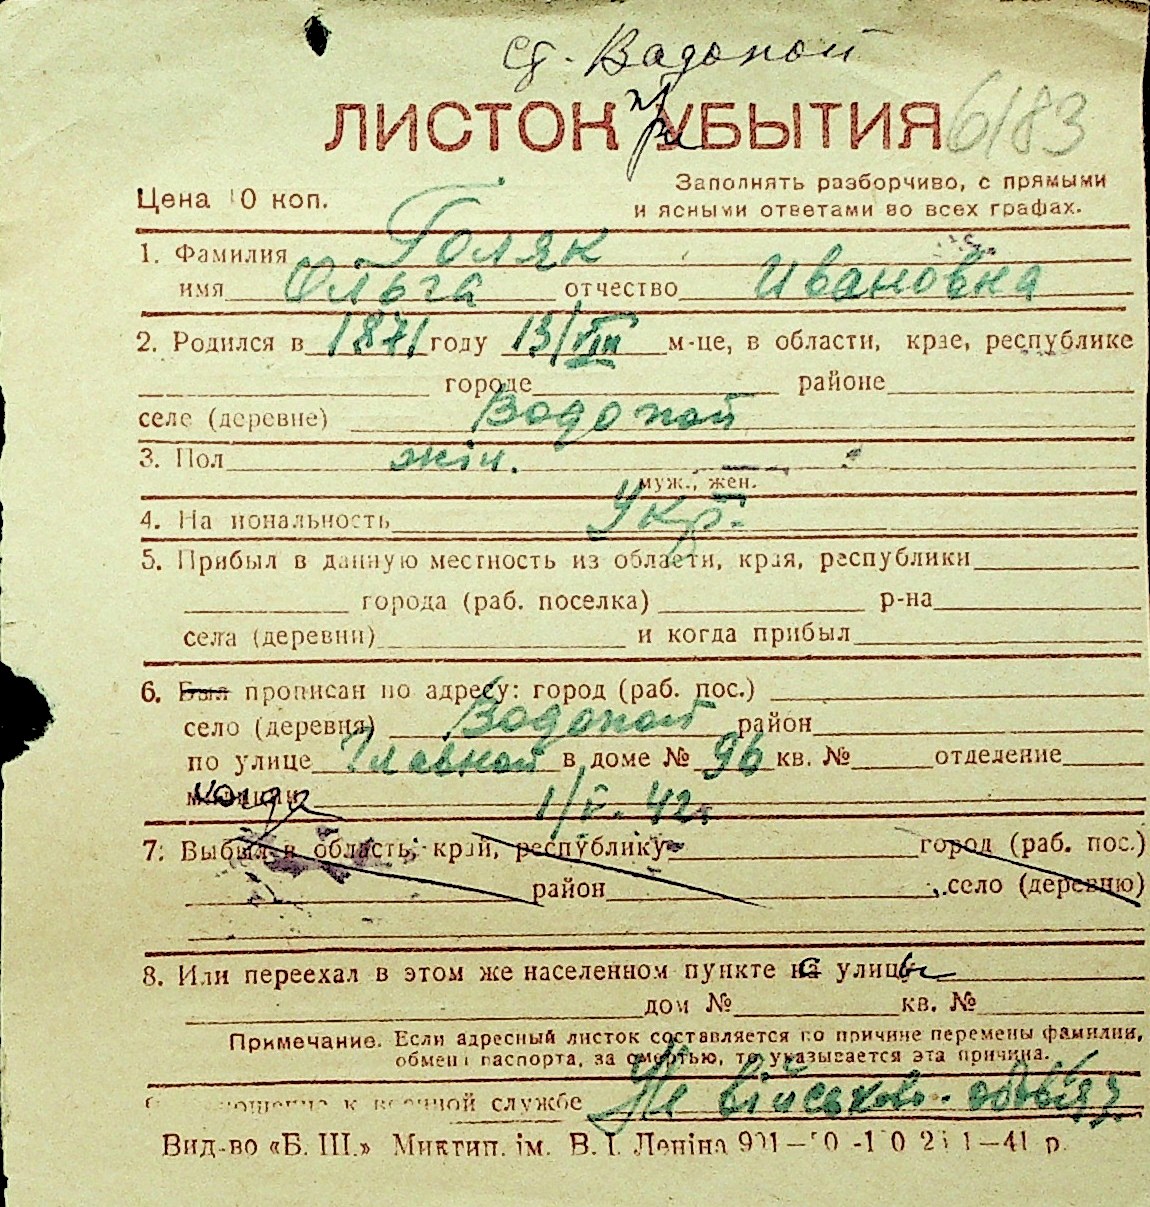 ст. Водопой
ЛИСТОК при УБЫТИЯ 6/83
Цена 10 коп.
Заполнять разборчиво, с прямыми
и ясными ответами во всех графах.
1. Фамилия Голяк
имя Ольга отчество Ивановна
2. Родился в 1871 году 13/VIII м-це, в области, крае, республике
городе районе
селе (деревне) Водопой
3. Пол жін.
муж., жен.
4. Национальность Укр.
5. Прибыл в данную местность из области, края, республики
города (раб. поселка) р-на
села (деревни) и когда прибыл
6. Был прописан по адресу: город (раб. пос.)
село (деревня) Водопой район
по улице Главной в доме № 96 кв. № отделение
милиции когда 1/V-42г.
7. Выбыл в область, край, республику город (раб. пос.)
район село (деревню)
8. Или переехал в этом же населенном пункте с улицы
дом № кв. №
Примечание. Если адресный листок составляется по причине перемены фамилии,
обмена паспорта, за смертью, то указывается эта причина.
отношение к военной службе Не військово-обов'яз.
Вид-во «Б. Ш.» Миктип. ім. В. І. Леніна